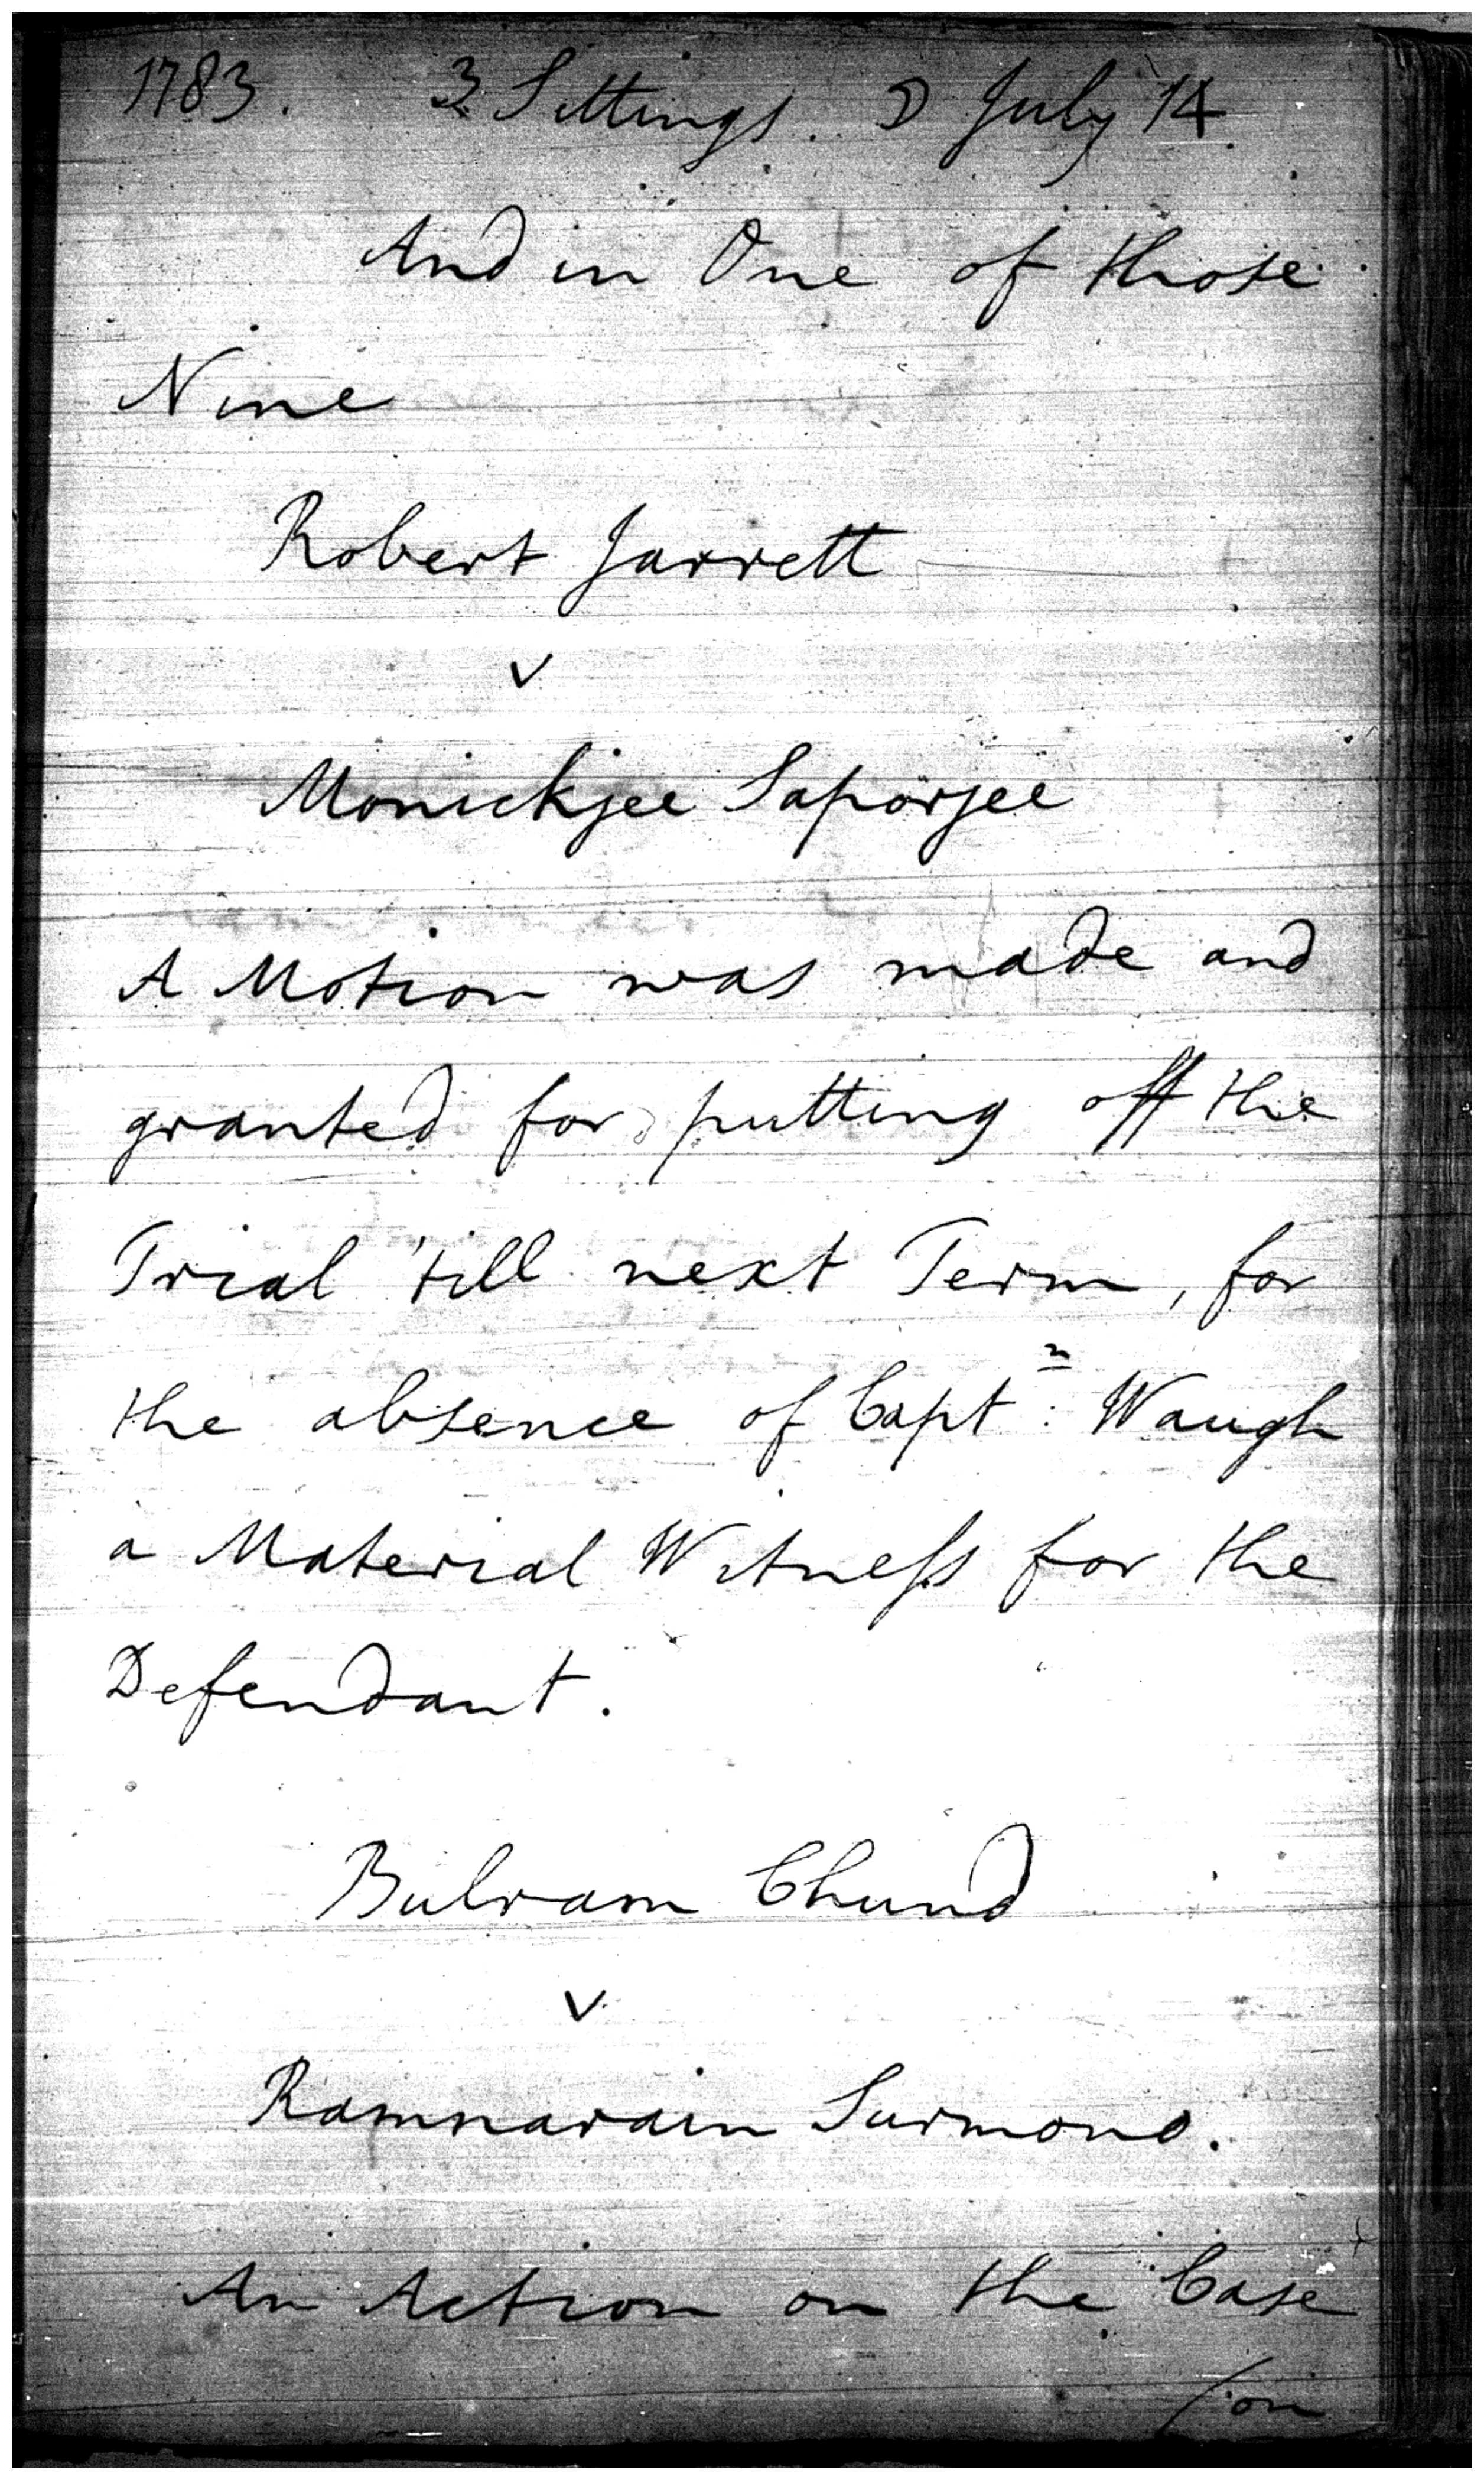 1783. 3 Sittings. ☽ July 14
And in One of those
Nine
Robert Jarrett
v
Monickjee Saporjee
A Motion was made and
granted for putting off the
Trial 'till next Term, for
the absence of Captn: Waugh
a Material Witness for the
Defendant.
Bulram Chund
v
Ramnarain Surmono.
An Action on the Case
/on